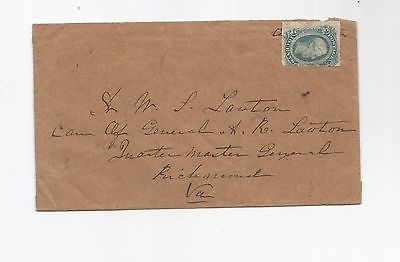 A W. S. Lawton
Care Of General A. R. Lawton
Quarter Master General
Richmond
Va